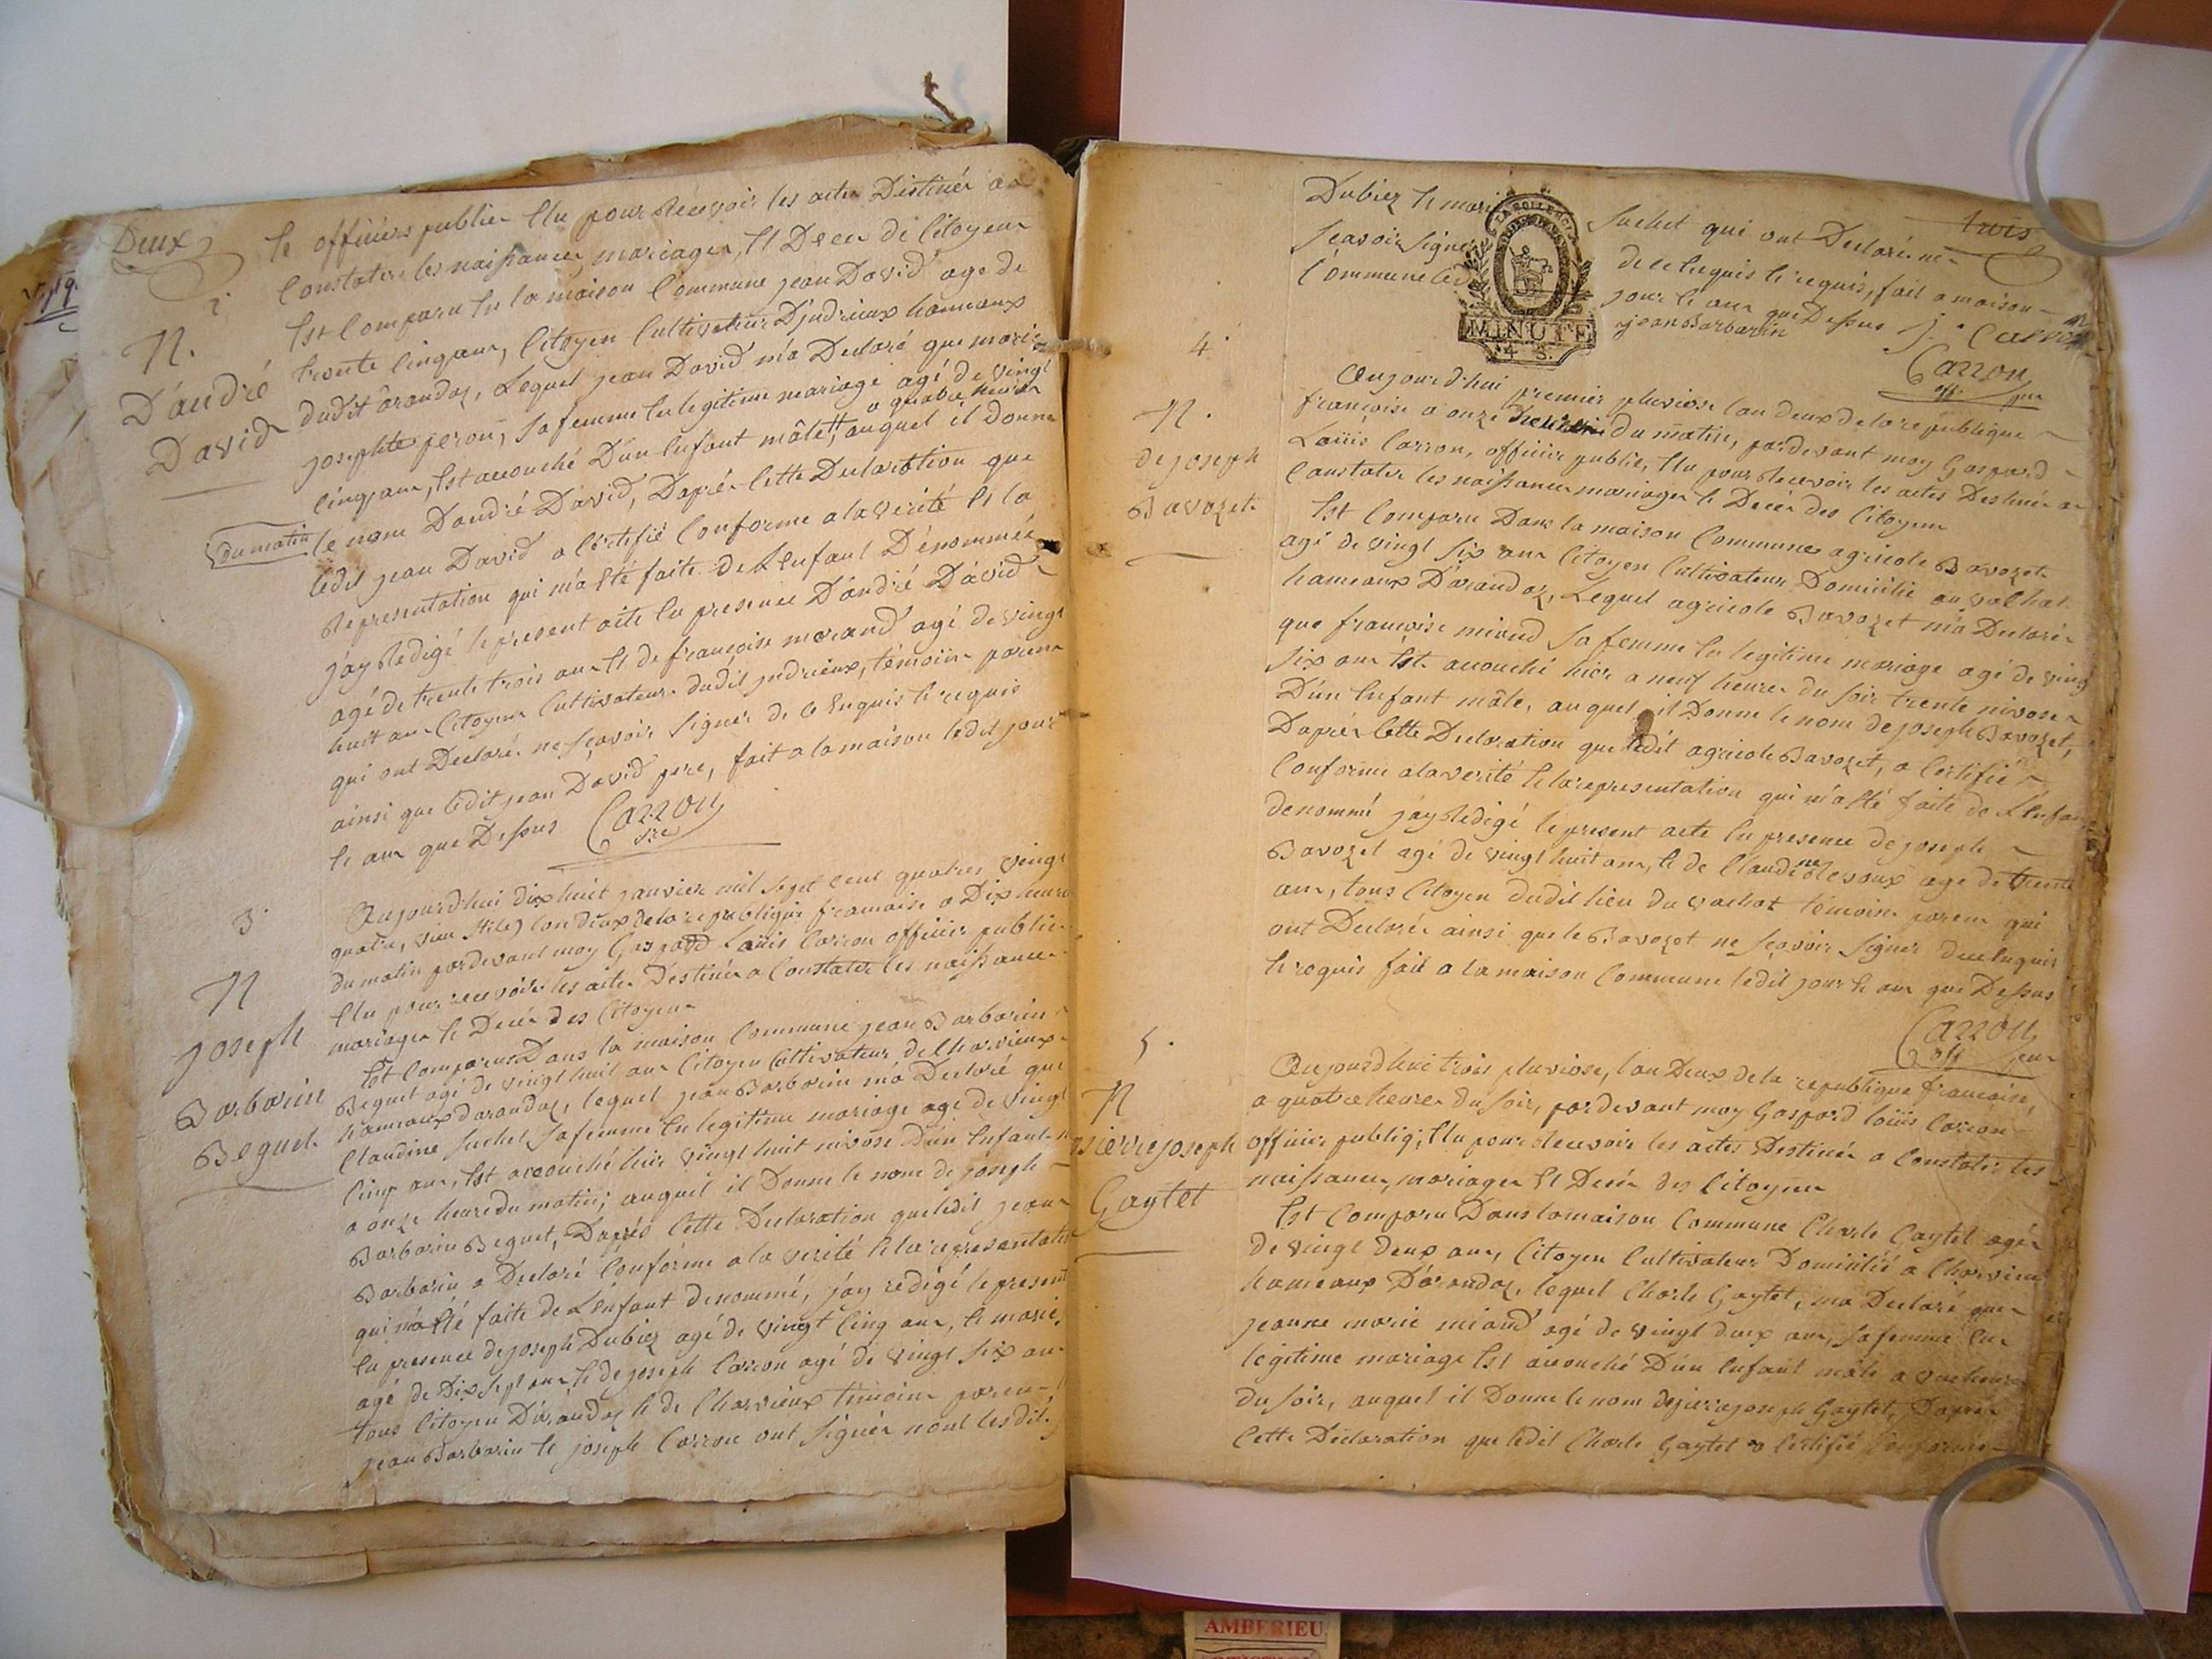 Deux
le officiers public Elu pour Recevoir les actes Destinés a
Constater les naissances, mariages, Et Deces de Citoyens
Est Comparu En la maison Commune jean David agé de
trente Cinq ans, Citoyen Cultivateur D'judrieux hameaux
dudit arandaz, Lequel jean David m'a Declaré que marie
josephte peron, sa femme En legitime mariage agé de vingt
a quatre heures
Cinq ans, Est accouché D'un Enfant mâle, auquel il Donne
2.
N.
D'andré
David
du matin
le nom Dandré David, D'aprés Cette Declaration que
ledit jean David a Certifié Conforme a la verité Et la
Representation qui m'a Eté faite de L'Enfant Dénommé
j'ay Redigé le present acte En presence D'andré David
agé de trente trois ans Et de françoise morand agé de vingt
huit ans Citoyens Cultivateurs dudit judrieux, témoins parens
qui ont Declaré ne sçavoir signer de ce Enquis Et requis
ainsi que ledit jean David pere, fait a la maison ledit jour
Et an que Dessus
Carron
3.
N
joseph
Barbarin
Beguet
Aujourd'hui dix huit janvier mil sept cent quatres vingt
quatre, vieu stile) l'an deux de la republique francaise a Dix heures
du matin pardevant moy Gaspard Loüis Carron officier public
Elu pour recevoir les actes Destinés a Constater les naissances
mariages Et Decés des Citoyens
Est Comparu Dans la maison Commune jean Barbarin
Beguet agé de vingt huit ans Citoyen Cultivateur de Charvieux
hameaux darandaz, lequel jean Barbarin m'a Declaré que
Claudine suchet sa femme En legitime mariage agé de vingt
Cinq ans, Est accouché hier vingt huit nivose D'un Enfant
a onze heure du matin; auquel il Donne le nom de joseph
Barbarin Beguet, D'aprés Cette Declaration que ledit jean
Barbarin a Declaré Conforme a la verité Et la representation
qui m'a Eté faite de L'enfant denommé, j'ay redigé le present
En presence de joseph Dubiez agé de vingt Cinq ans, Et marie
agé de Dix sept ans Et de joseph Carron agé de vingt six ans
tous Citoyens D'arandaz Et de Charvieux témoins parens
jean Barbarin Et joseph Carron ont signér nont lesdit
trois
Dubiez Et marie suchet qui ont Declaré ne
sçavoir signer de ce Enquis Et requis, fait a maison
Commune led jour Et an que Dessus
MINUTE
4 S.
jean Barbarin
Carron
off. pu
4.
N.
de joseph
Bavozet
Aujourd'hui premier pluviose l'an deux de la republique
françoise a onze heures du matin, pardevant moy Gaspard
Loüis Carron, officier public, Elu pour Recevoir les actes Destinés a
Constater les naissances mariages Et Decés des Citoyens
Est Comparu Dans la maison Commune agricole Bavozet
agé de vingt six ans Citoyen Cultivateur Domicilié au vachat
hameaux D'arandaz, Lequel agricole Bavozet m'a Declaré
que françoise miand sa femme En legitime mariage agé de vingt
six ans Est accouché hier a neuf heures du soir trente nivose
D'un Enfant mâle, auquel il Donne le nom de joseph Bavozet,
D'aprés Cette Declaration que ledit agricole Bavozet, a Certifié
Conforme a la verité Et la representation qui m'a Eté faite de L'Enfan
denommé j'ay Redigé le present acte En presence de joseph
Bavozet agé de vingt huit ans, Et de Claudine agé de trente
ans, tous Citoyen dudit lieu du vachat témoins parens qui
ont Declaré ainsi que le Bavozet ne sçavoir signer de ce Enquis
Et requis fait a la maison Commune ledit jour Et an que Dessus
Carron
off pu
5.
N
pierre joseph
Gaytet
Aujourd'hui trois pluviose, l'an Deux de la republique francaise,
a quatre heures du soir, pardevant moy Gaspard loüis Carron
officier public; Elu pour Recevoir les actes Destinés a Constater les
naissances, mariages Et Decés des Citoyens
Est Comparu Dans la maison Commune Charle Gaytet agé
de vingt deux ans, Citoyen Cultivateur Domicilié a Charvieux
hameaux D'arandaz, lequel Charle Gaytet, ma Declaré que
jeanne marie miand agé de vingt deux ans, sa femme En
legitime mariage Est accouché D'un Enfant mâle a
du soir, auquel il Donne le nom de pierre joseph Gaytet, D'aprés
Cette Declaration que ledit Charle Gaytet a Certifié Conforme
AMBERIEU